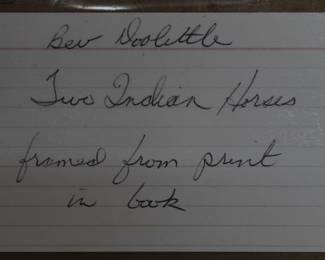 Bev Doolittle
Two Indian Horses
framed from print
in book